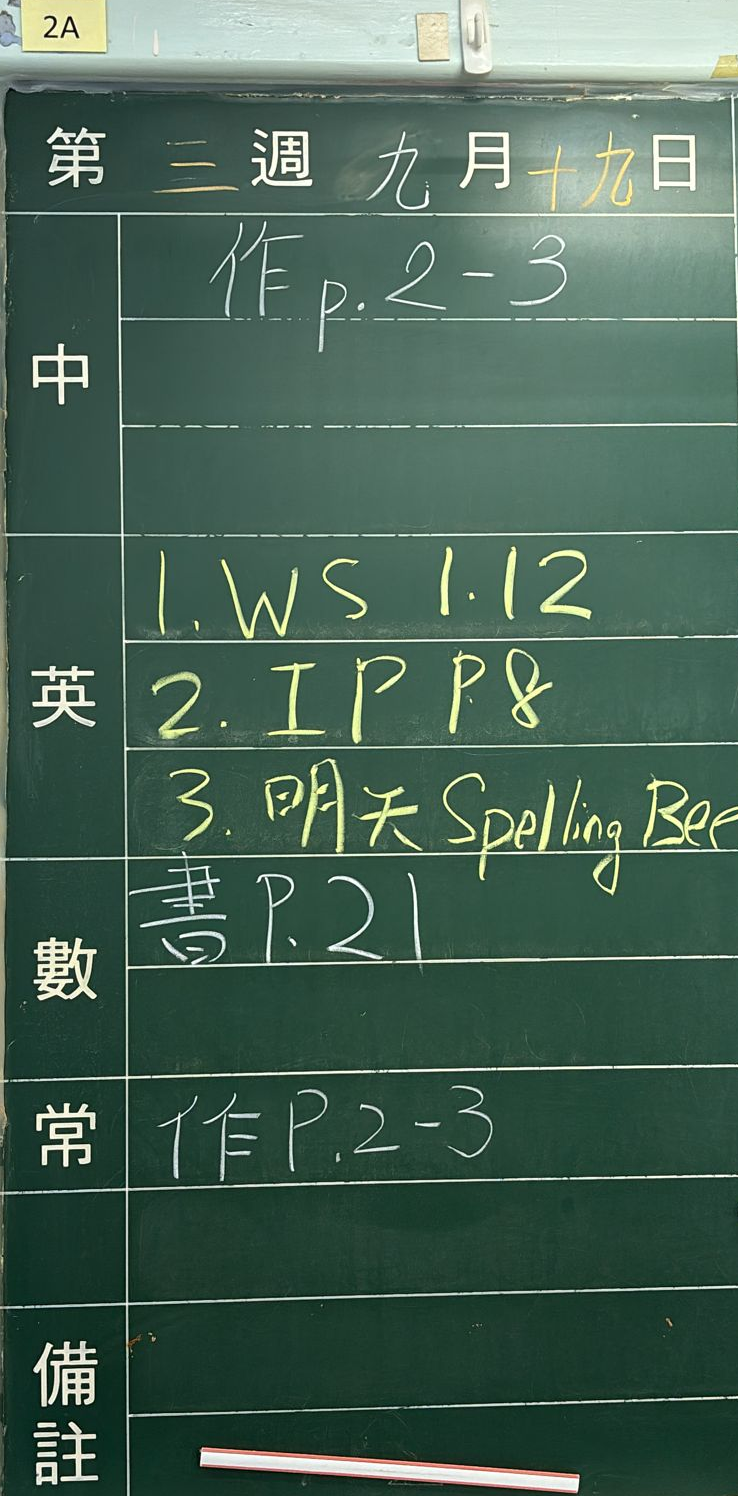 2A
第三週九月十九日
中
作 p.2-3
英
1. WS 1.12
2. IP P.8
3. 明天 Spelling Bee
數
書 P.21
常
作 P.2-3
備註